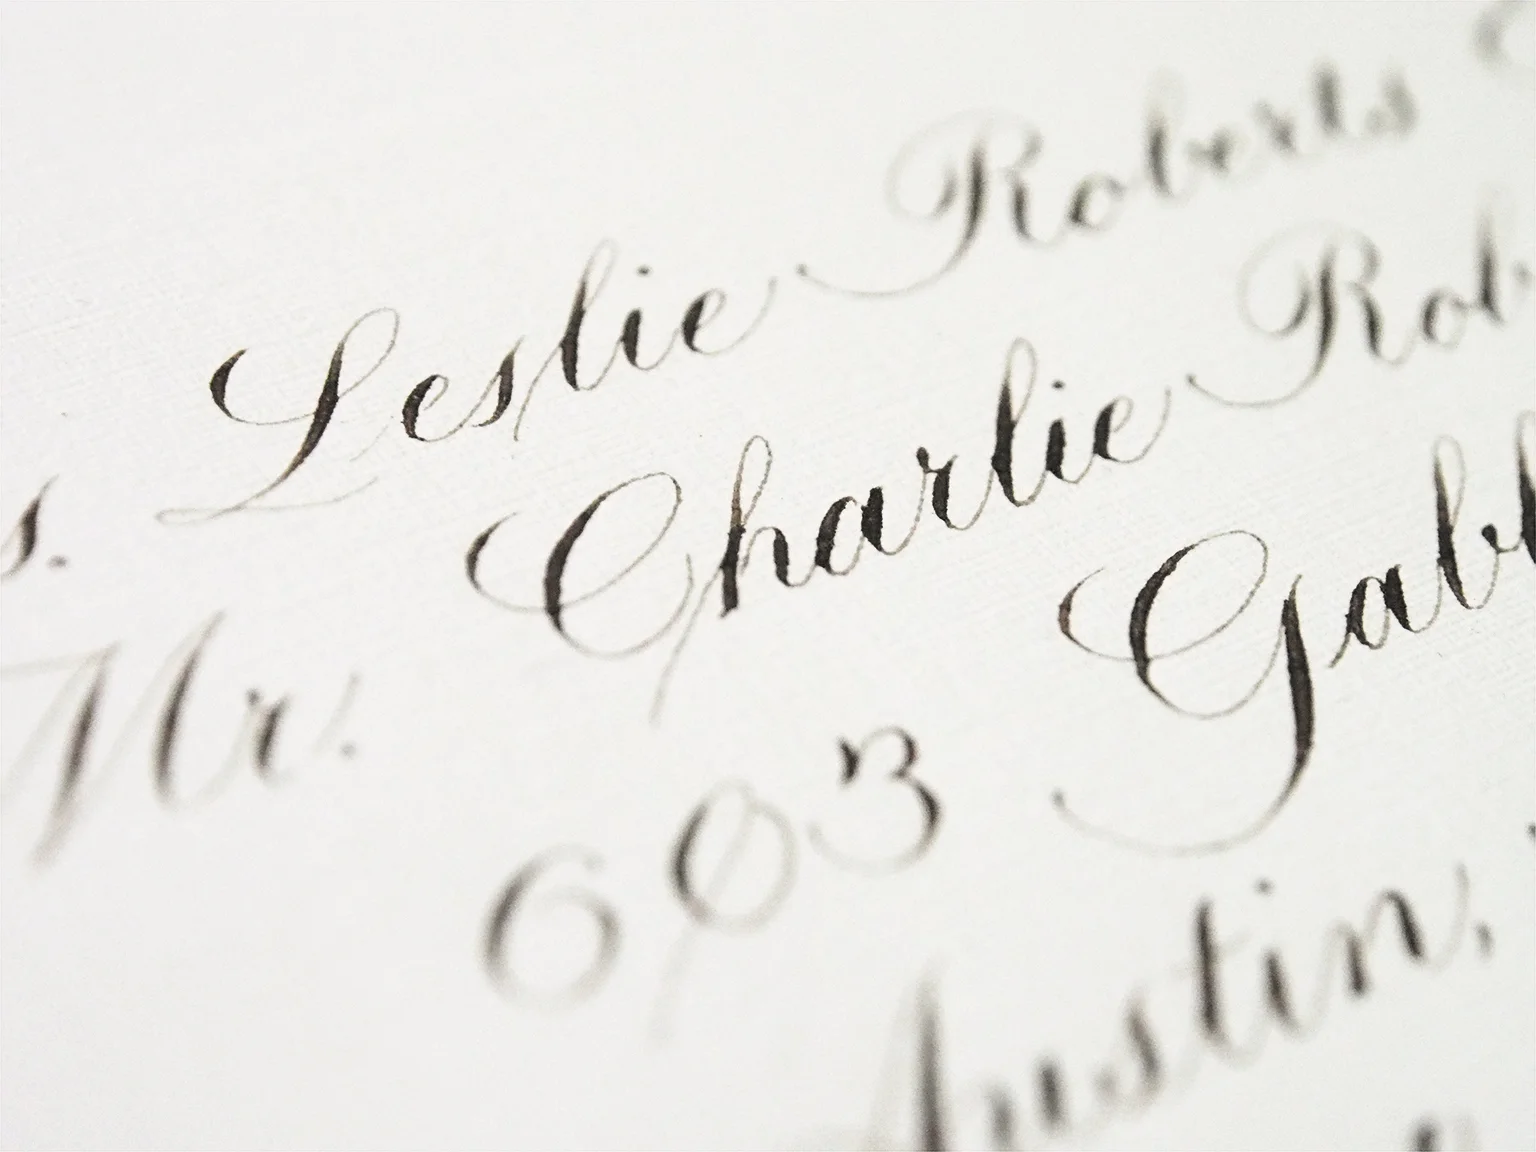 Leslie Roberts
Mr. Charlie Rob
603 Gabl
Austin,